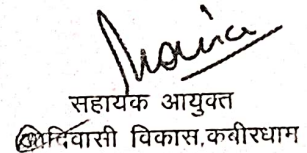 सहायक आयुक्त
आदिवासी विकास,कबीरधाम